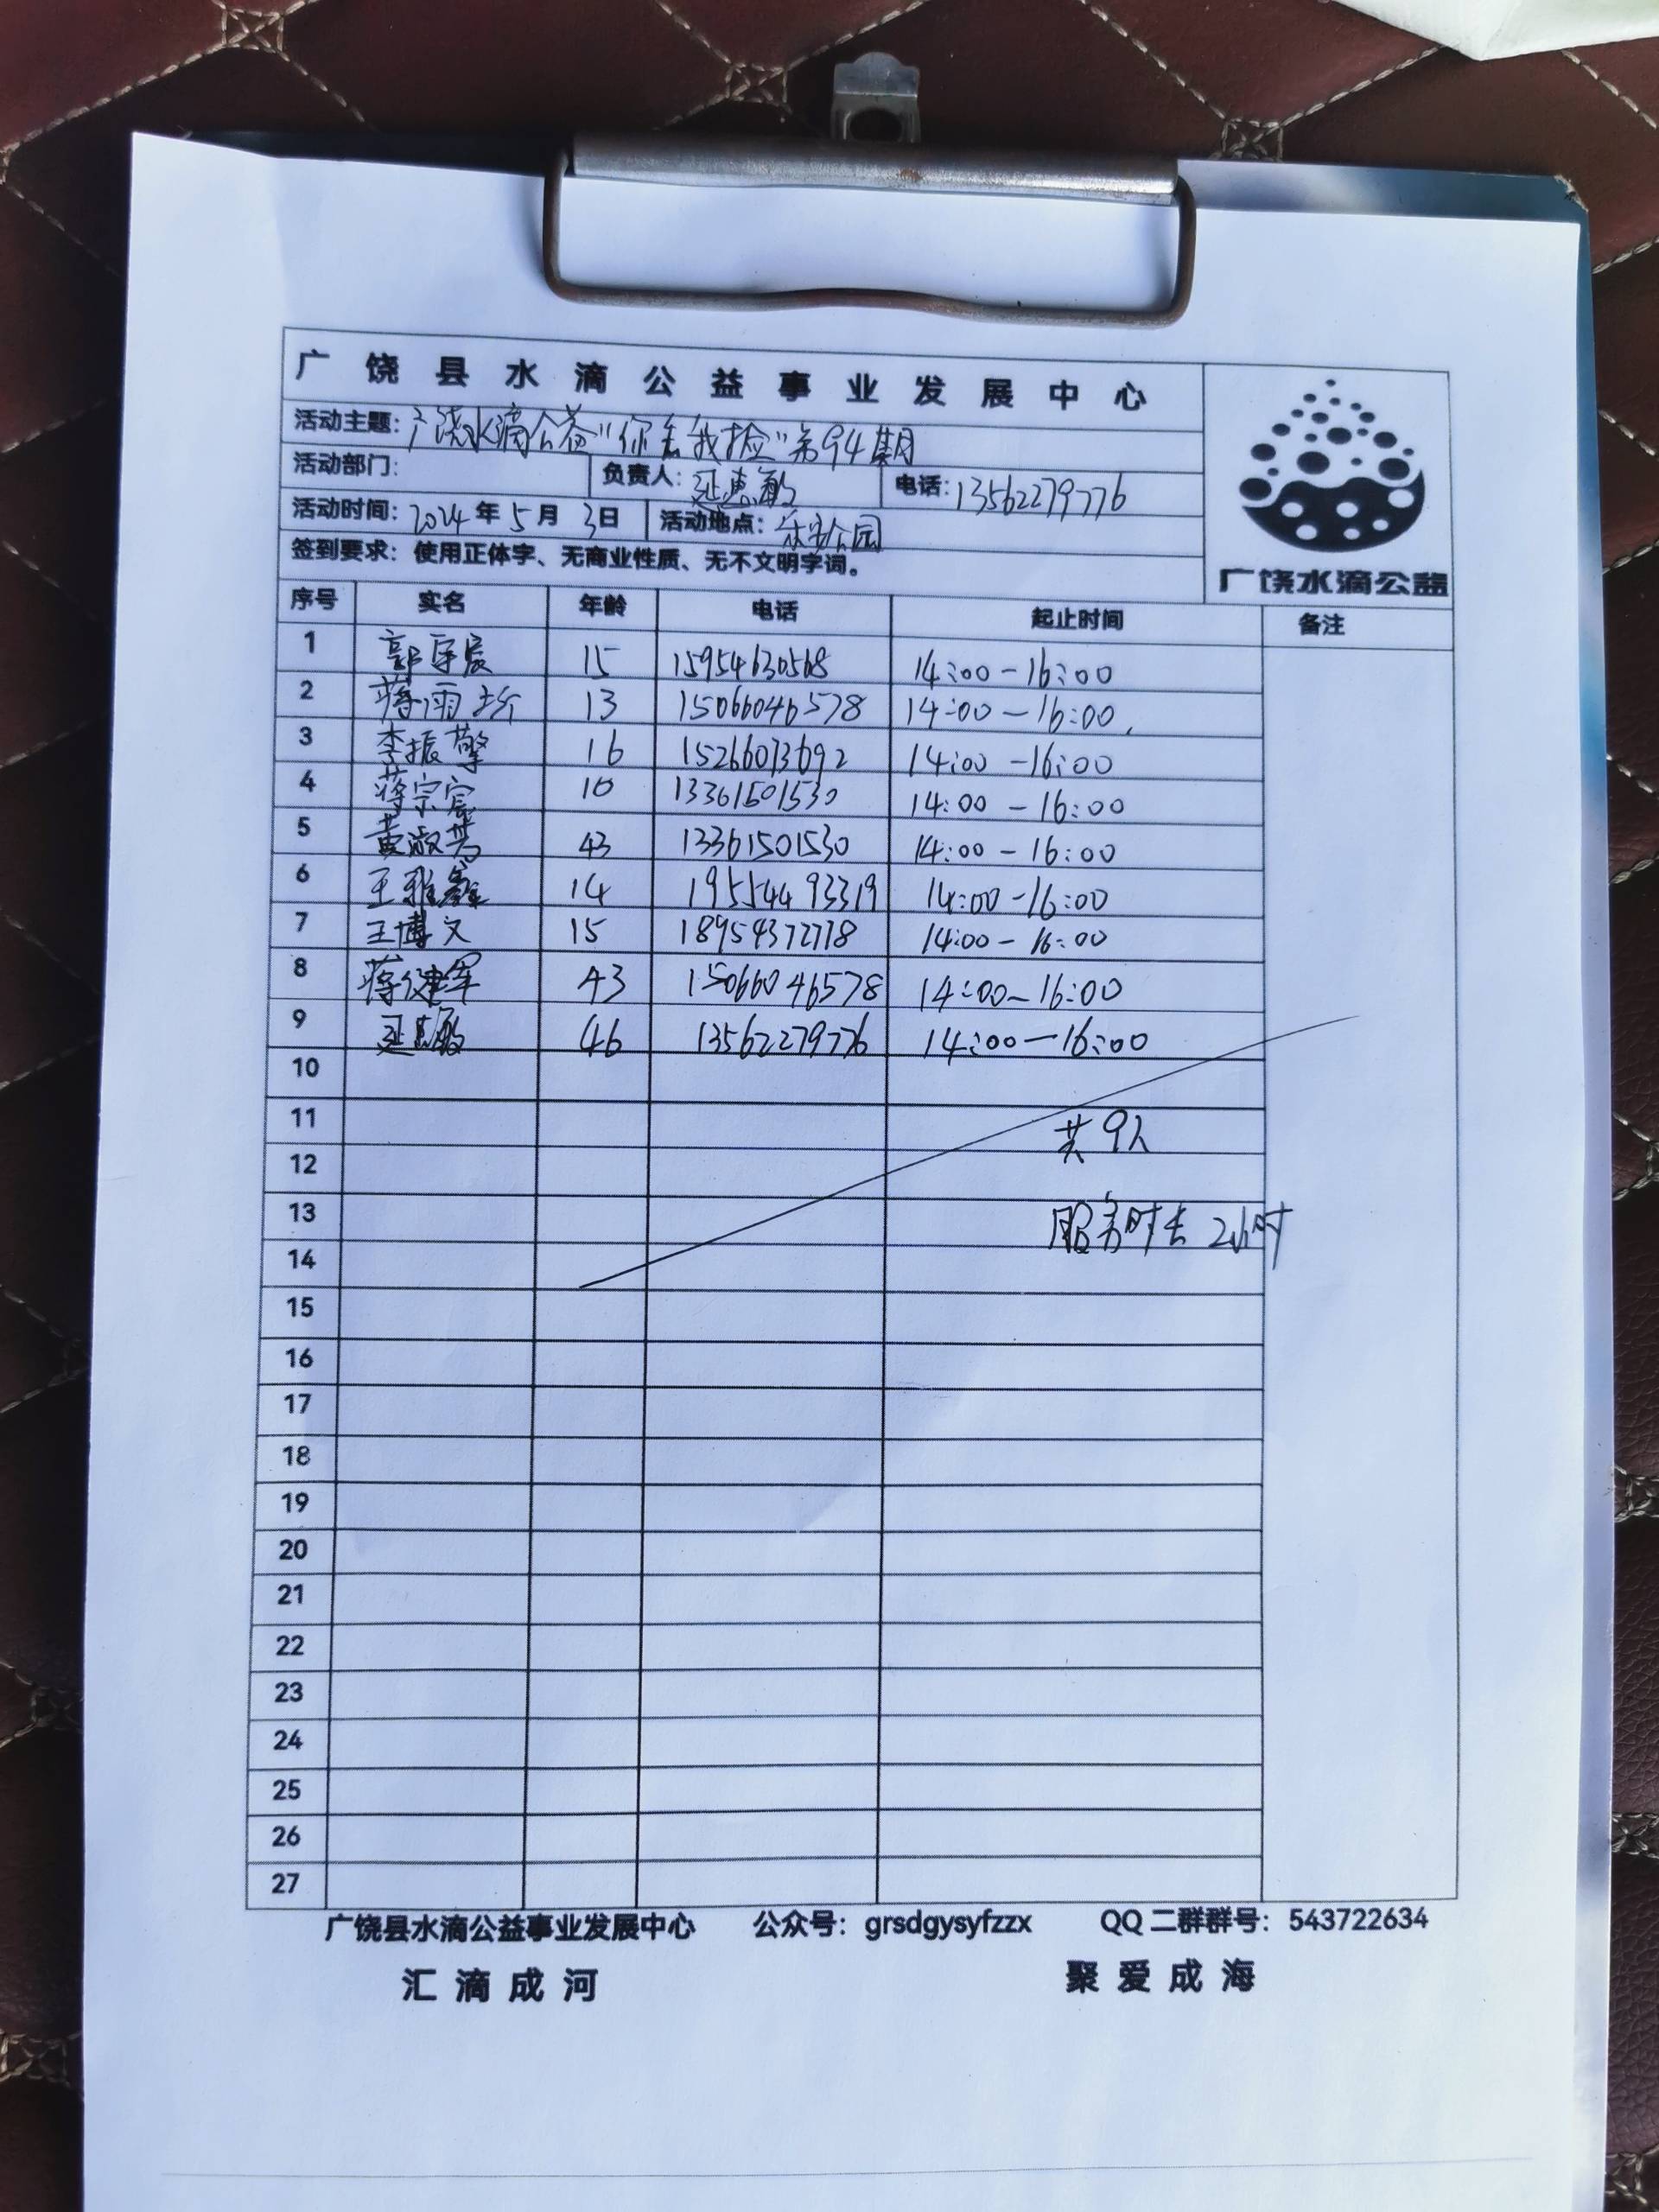 广饶县水滴公益事业发展中心
活动主题：广饶水滴公益“你丢我捡”第94期
活动部门： 负责人：延惠敏 电话：13562279776
活动时间：2024年5月3日 活动地点：乐安公园
签到要求：使用正体字、无商业性质、无不文明字词。
广饶水滴公益
序号 实名 年龄 电话 起止时间 备注
1 郭宇宸 15 15954630568 14:00-16:00
2 蒋雨圻 13 15066046578 14:00-16:00
3 李振擎 16 15266073692 14:00-16:00
4 蒋宗宸 10 13361501530 14:00-16:00
5 黄淑芳 43 13361501530 14:00-16:00
6 王雅鑫 14 19554493319 14:00-16:00
7 王博文 15 18954372778 14:00-16:00
8 蒋健军 43 15066046578 14:00-16:00
9 延惠敏 46 13562279776 14:00-16:00
10
11 共9人
12
13 服务时长2小时
14
15
16
17
18
19
20
21
22
23
24
25
26
27
广饶县水滴公益事业发展中心 公众号：grsdgysyfzzx QQ二群群号：543722634
汇滴成河 聚爱成海